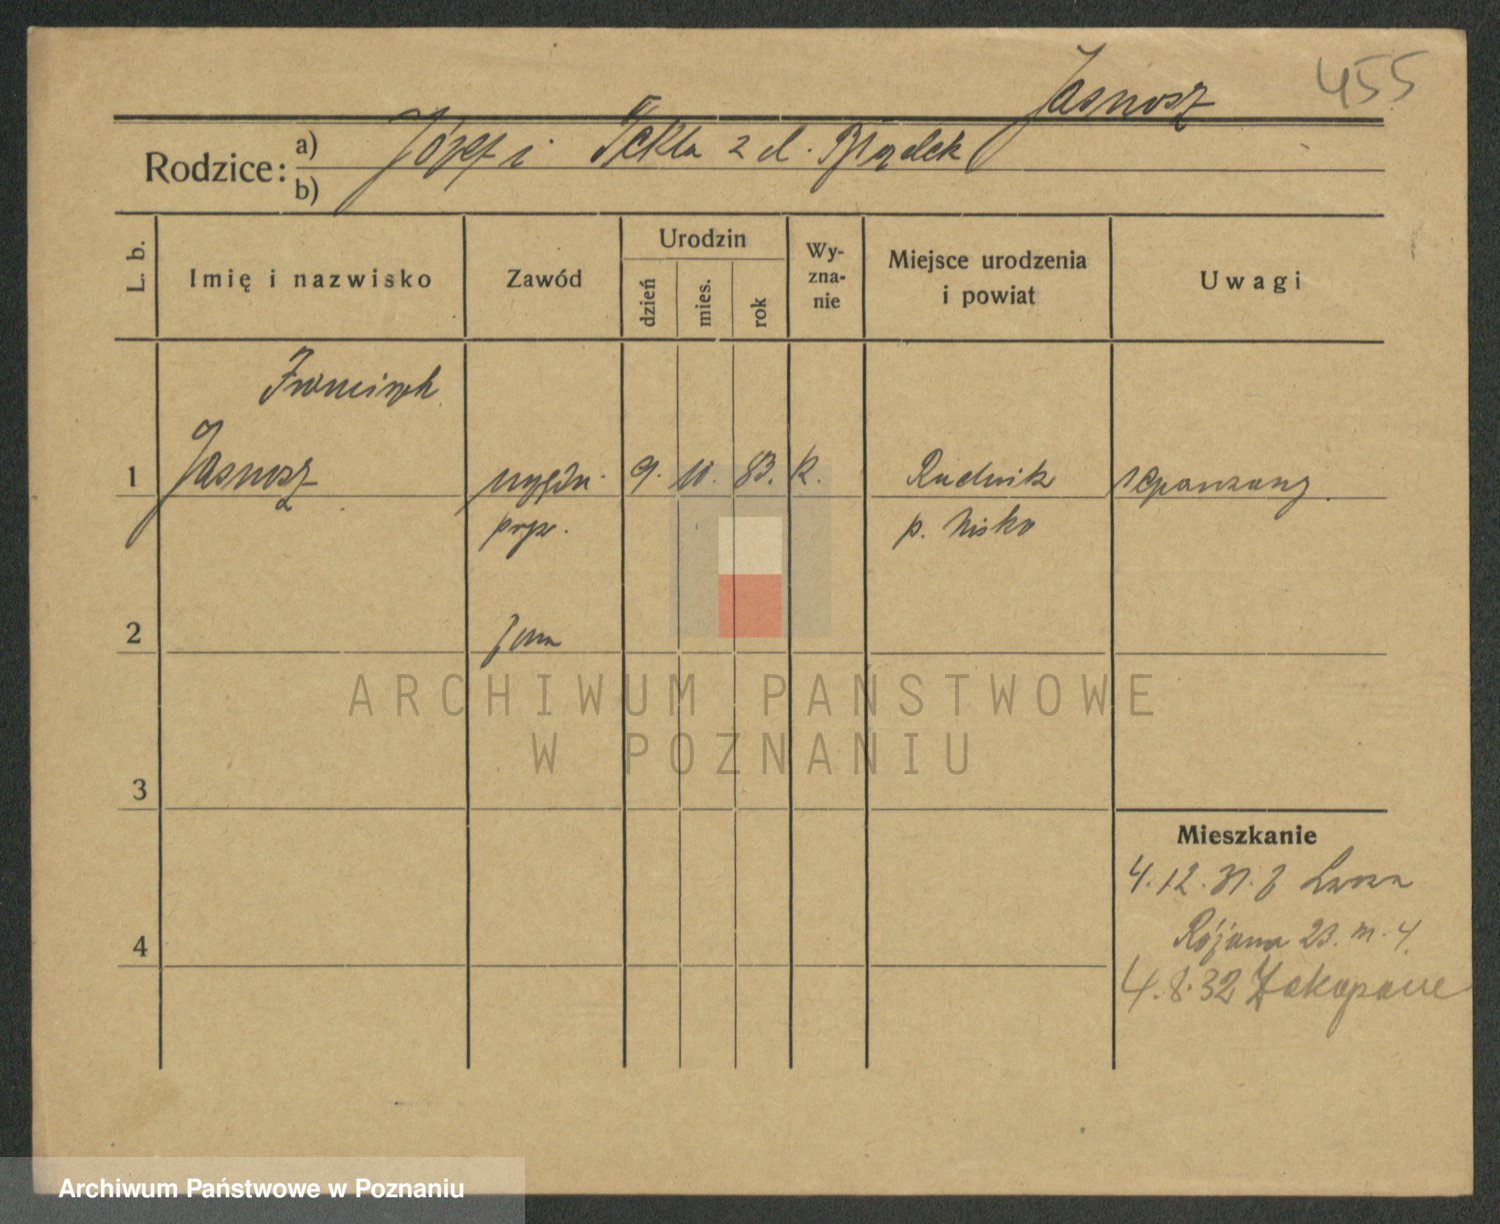 455
Jasnosz
Rodzice: a) Józef i Tekla z d. Błądek
b)
L. b. Imię i nazwisko Zawód Urodzin dzień mies. rok Wy-zna-nie Miejsce urodzenia i powiat Uwagi
Franciszek
1 Jasnosz 9. 10. 83. R. Rudnik separowany
p. Nisko
2 żona
3
Mieszkanie
4. 12. 31. z
4 Różana 23. m. 4.
4. 8. 32 Zakopane
ARCHIWUM PAŃSTWOWE
W POZNANIU
Archiwum Państwowe w Poznaniu